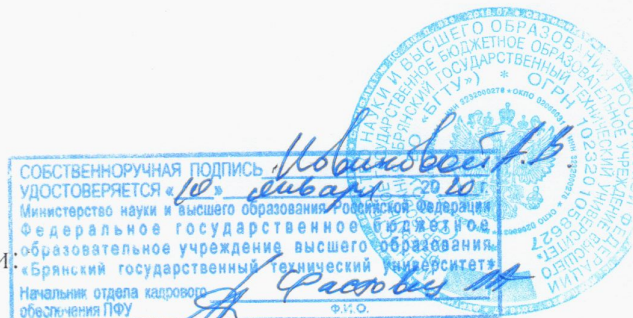 СОБСТВЕННОРУЧНАЯ ПОДПИСЬ Новиковой А.В.
УДОСТОВЕРЯЕТСЯ «10» января 2020 г.
Министерство науки и высшего образования Российской Федерации
Федеральное государственное бюджетное
образовательное учреждение высшего образования
«Брянский государственный технический университет»
Начальник отдела кадрового
обеспечения ПФУ
Ф.И.О.
и:
НАУКИ И ВЫСШЕГО ОБРАЗОВАНИЯ РОС
ФЕДЕРАЦИИ
ГОСУДАРСТВЕННОЕ БЮДЖЕТНОЕ ОБРАЗОВАТЕЛЬНОЕ УЧРЕЖДЕНИЕ ВЫСШЕГО
БРЯНСКИЙ ГОСУДАРСТВЕННЫЙ ТЕХНИЧЕСКИЙ УНИВЕРСИТЕТ»
«БГТУ») * ОГРН 1023201058627